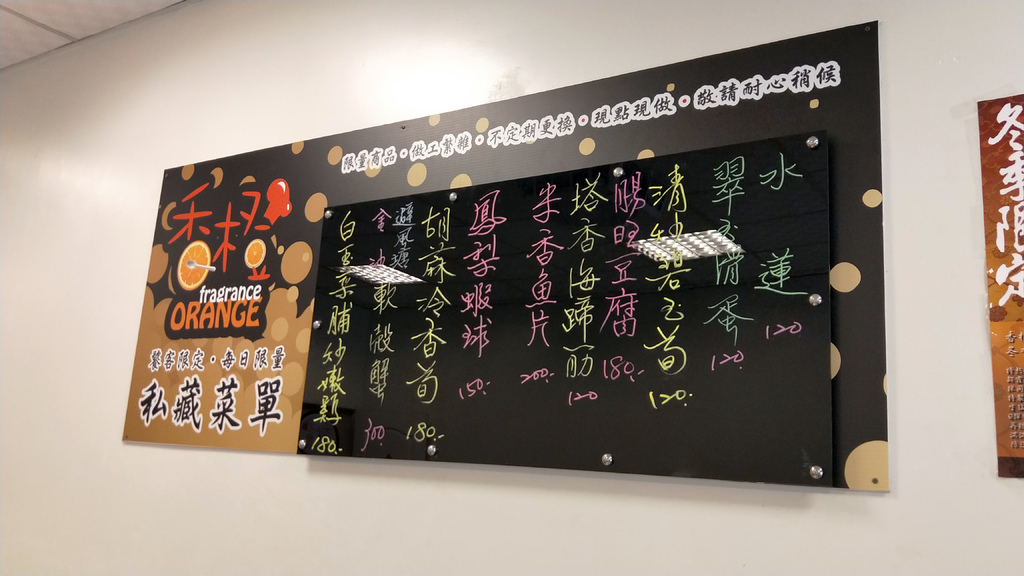 限量商品・做工繁雜・不定期更換・現點現做・敬請耐心稍候
香橙
fragrance
ORANGE
饕客限定・每日限量
私藏菜單
水蓮 120
翠玉滑蛋 120
清炒碧玉筍 120.
賜旺豆腐 180.
塔香海蹄筋 120
米香魚片 200.
鳳梨蝦球 150.
胡麻冷香筍 180.
避風塘
金沙軟殼蟹 300.
白玉菜脯炒嫩 180.
冬季限定